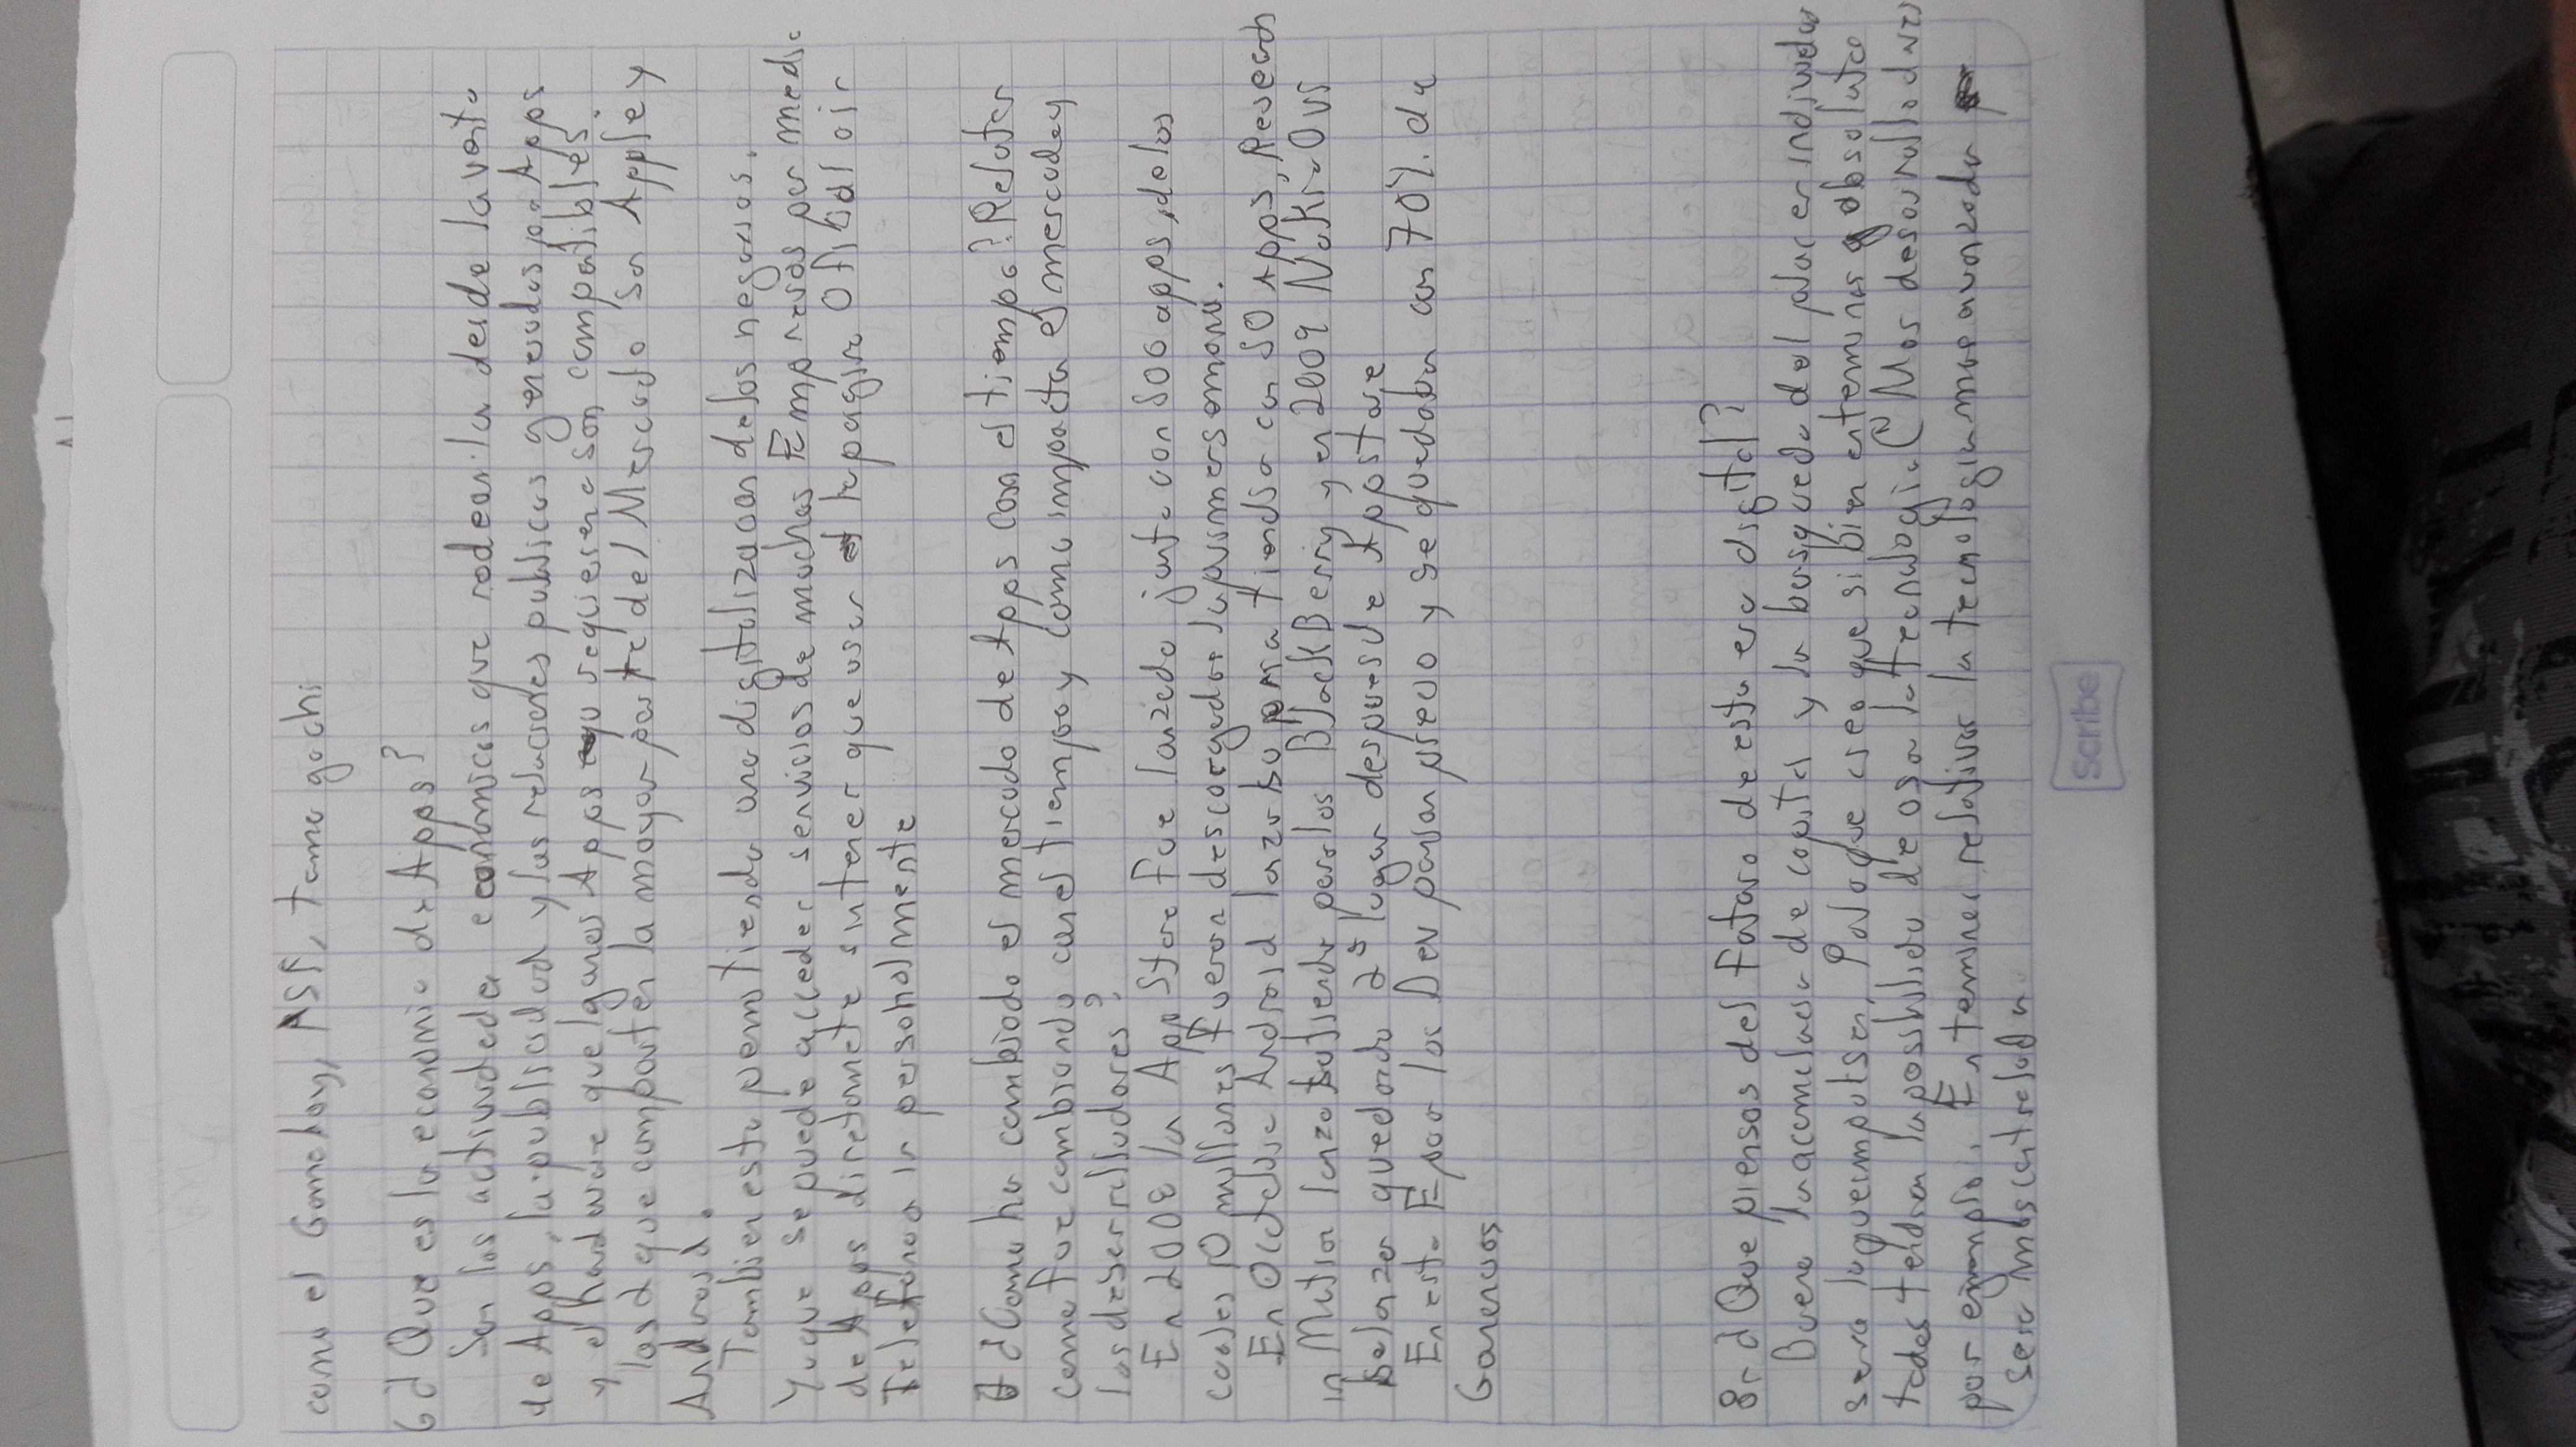 como el Gameboy, PSP, tamagochi
6 ¿Que es la economia de Apps?
Son las actividades economicas que rodean la desde la venta
de Apps, la publicidad y las relaciones publicas generadas por Apps
y el hardware que lagunas Apps requieren e son compatibles
las que comparten la mayor parte del Mercado son Apple y
Android.
Tambien esta permitiendo una digitalizacion de los negocios.
Ya que se puede acceder servicios de muchas Empresas por medio
de Apps diretamete sin tener que usar la pagina Oficial o ir
Telefono o ir personalmente
7 ¿Como ha cambiado el mercado de Apps con el tiempo? Relatar
como fue cambiando con el tiempo y como impacta el mercado y
los deserrilladores?
En 2008 la App Store fue lanzado junto con 500 apps, de los
cuales 10 millones Fueron descargados la primer semana.
En Octubre Android lanzo su propia tienda con 50 Apps, Reserch
in Motion lanzo tambien para los BlackBerry y en 2009 Nokia Ovi
belanzar quedando 2º lugar despues de Appstore
En esta Epoa los Dev ponian precio y se quedaban con 70% de
Ganancias
8 ¿Que piensas del Futuro de esta era digital?
Bueno la acumulacion de capital y la busqueda del placer individual
sera lo que impulsen, Por lo que creo que si bien en terminos absolutos
todos tendran la posibilidad de usar la tecnologia (Mas desarrollo
por ejemplo. En terminos relativos la tecnologia mas avanzada
sera mas centrelada.
Scribe